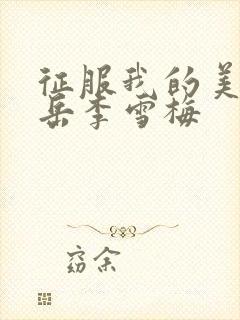 征服我的美
岳李雪梅
窈余